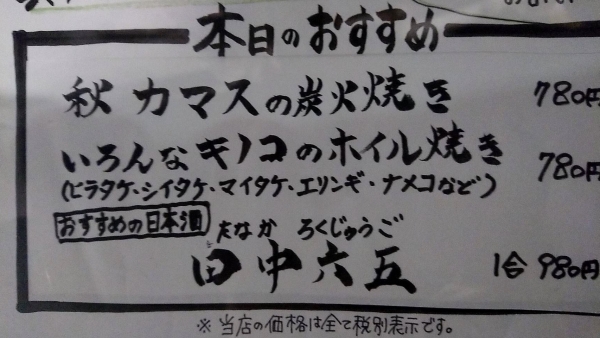 本日のおすすめ
秋カマスの炭火焼き 780円
いろんなキノコのホイル焼き 780円
(ヒラタケ・シイタケ・マイタケ・エリンギ・ナメコなど)
おすすめの日本酒 たなか ろくじゅうご
田中六五 1合 980円
※当店の価格は全て税別表示です。